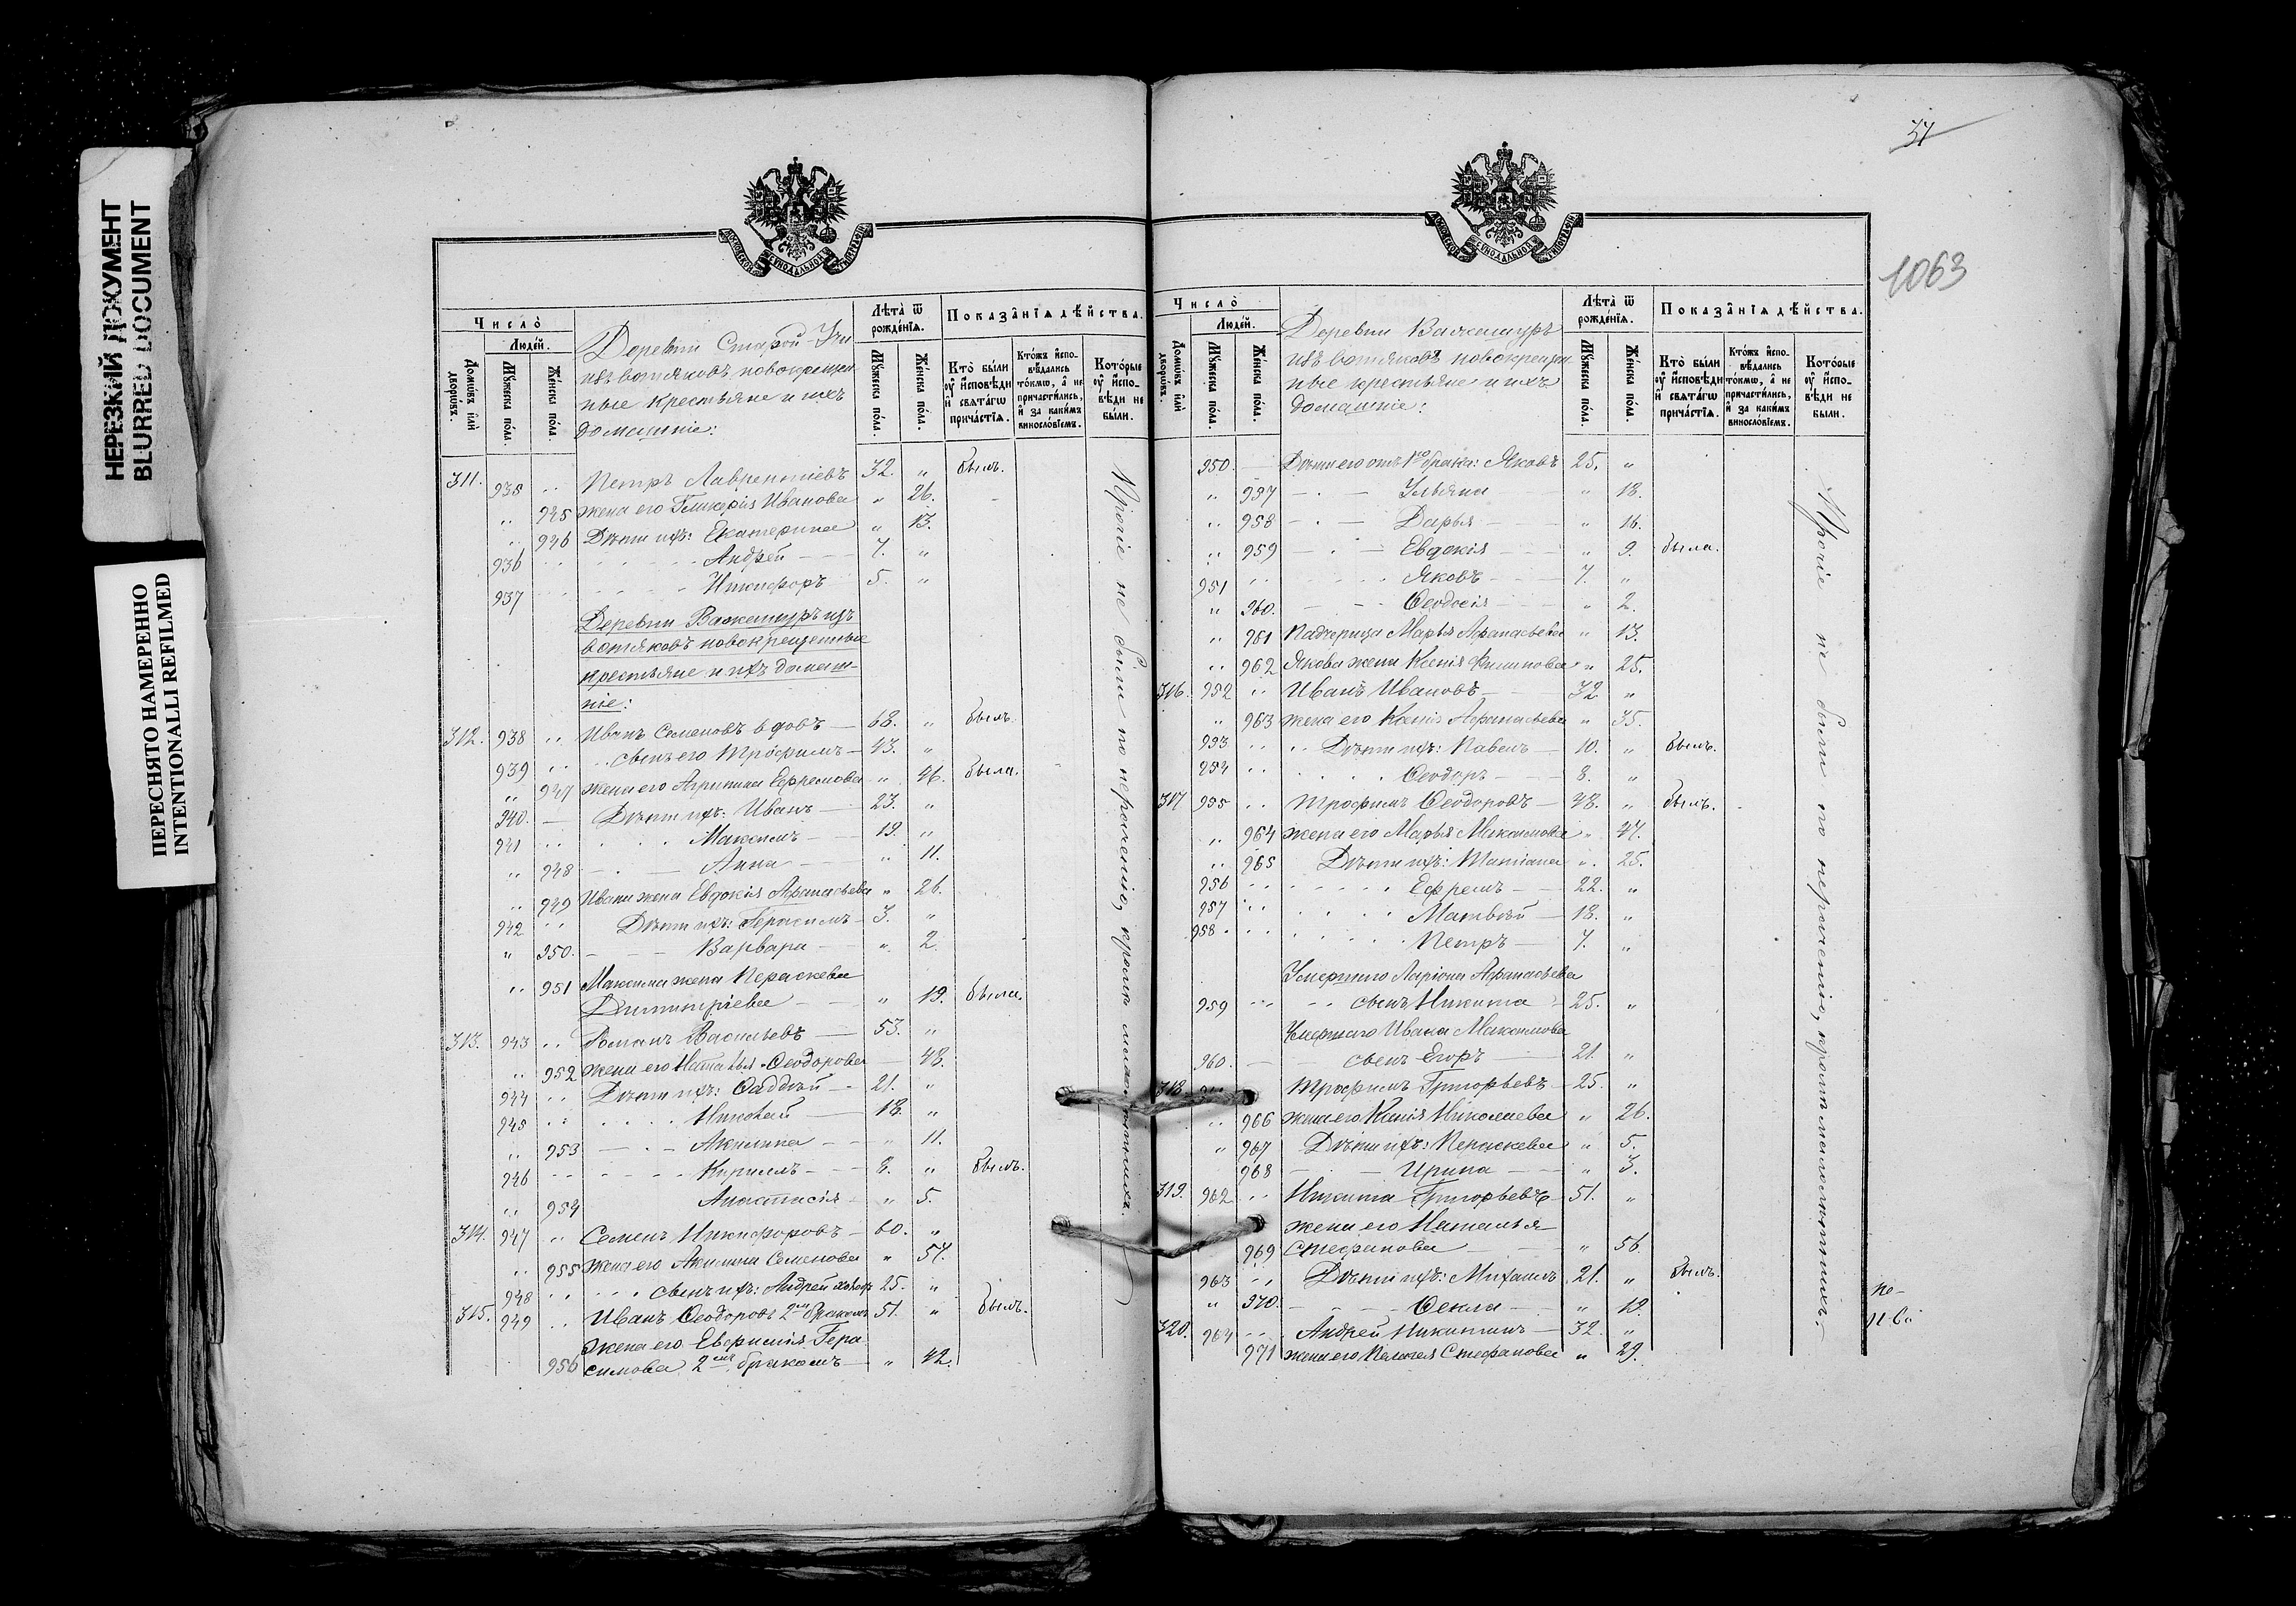 НЕРЕЗКИЙ ДОКУМЕНТ
BLURRED DOCUMENT
ПЕРЕСНЯТО НАМЕРЕННО
INTENTIONALLI REFILMED
МОСКОВСКОЙ СѴНОДАЛЬНОЙ ТИПОГРАФІИ
Число̀
Людей.
Домѡвъ или дворѡвъ.
Мꙋжеска пола.
Женска пола.
Деревни Старой Учи
изъ вотяковъ новокрещен
ные крестьяне и ихъ
домашніе:
Лѣта ѿ рожденїѧ.
Мꙋжеска пола.
Женска пола.
Показанїѧ дѣйства.
Кто были оу исповѣди и свѧтагѡ причастїѧ.
Ктожъ исповѣдались токмѡ, а не причастились, и за какимъ винословїемъ.
Которые оу исповѣди не были.
311. 935 .. Петръ Лаврентіевъ 32. " былъ.
" 945 жена его Гликерія Иванова " 26.
" 946 Дѣти ихъ: Екатерина " 13.
936 .. Андрей 7. "
937 .. Никифоръ 5. "
Деревни Важашуръ изъ
вотяковъ новокрещенные
крестьяне и ихъ домаш-
ніе:
312. 938 .. Иванъ Семеновъ вдовъ 68. " былъ.
939 .. сынъ его Трофимъ 43. "
" 947 жена его Агрипина Ефремова " 46. была.
940. Дѣти ихъ: Иванъ 23. "
941 .. Максимъ 19. "
" 948 Анна " 11.
" 949 Ивана жена Евдокія Афанасьева " 26.
942 .. Дѣти ихъ: Герасимъ 3. "
" 950. Варвара " 2.
" 951 Максима жена Параскева
Димитріева " 19. была.
313. 943 .. Романъ Васильевъ 53. "
" 952 жена его Наталья Ѳеодорова 48.
944 .. Дѣти ихъ: Ѳаддей 21. "
945 .. 18. "
" 953 Акилина " 11.
946 .. Кириллъ 8. " былъ.
" 954 Анастасія " 5.
314. 947 " Семенъ Никифоровъ 60. "
" 955 жена его Акилина Семенова " 57.
948 .. сынъ ихъ: Андрей 25. "
315. 949 .. Иванъ Ѳеодоровъ 2мъ бракомъ 51. " былъ.
жена его Евфимія Гера
956 симова 2мъ бракомъ " 42.
Прочіе не были по нераченію, кромѣ малолѣтнихъ.
37
1063
МОСКОВСКОЙ СѴНОДАЛЬНОЙ ТИПОГРАФІИ
Число̀
Людей.
Домѡвъ или дворѡвъ.
Мꙋжеска пола.
Женска пола.
Деревни Важашуръ
изъ вотяковъ новокрещен
ные крестьяне и ихъ
домашніе:
Лѣта ѿ рожденїѧ.
Мꙋжеска пола.
Женска пола.
Показанїѧ дѣйства.
Кто были оу исповѣди и свѧтагѡ причастїѧ.
Ктожъ исповѣдались токмѡ, а не причастились, и за какимъ винословїемъ.
Которые оу исповѣди не были.
950. Дѣти его отъ 1го брака: Яковъ 25. "
" 957 Ульяна " 18.
" 958 Дарья " 16.
" 959 Евдокія " 9. была.
951 .. Яковъ 7. "
" 960. Ѳеодосія " 2.
" 961 Падчерица Марья Афанасьева " 13.
" 962 Якова жена Ксенія Филипова " 25.
316. 952 " Иванъ Ивановъ 32 "
" 963 жена его Ксенія Афанасьева " 35.
953 .. Дѣти ихъ: Павелъ 10. " былъ.
954 .. Ѳеодоръ 8. "
317 955 .. Трофимъ Ѳеодоровъ 48. " былъ.
" 964 жена его Марья Максимова " 47.
" 965 Дѣти ихъ: Татіана " 25.
956 .. Ефремъ 22. "
957 .. Матвѣй 18. "
958 .. Петръ 7. "
Умершаго Ларіона Афанасьева
959 .. сынъ Никита 25. "
Умершаго Ивана Максимова
960. сынъ Егоръ 21. "
318 Трофимъ Григорьевъ 25. "
" 966 жена его Ксенія Николаева " 26.
" 967 Дѣти ихъ: Параскева " 5.
968 Ирина " 3.
319. 962 .. Никита Григорьевъ 51. "
жена его Наталья
969 Стефанова " 56.
963 .. Дѣти ихъ: Михаилъ 21. " былъ.
" 970. Ѳекла " 12.
320. 964 .. Андрей Никитинъ 32. "
971 жена его Пелагея Стефанова " 29.
Прочіе не были по нераченію, кромѣ малолѣтнихъ.